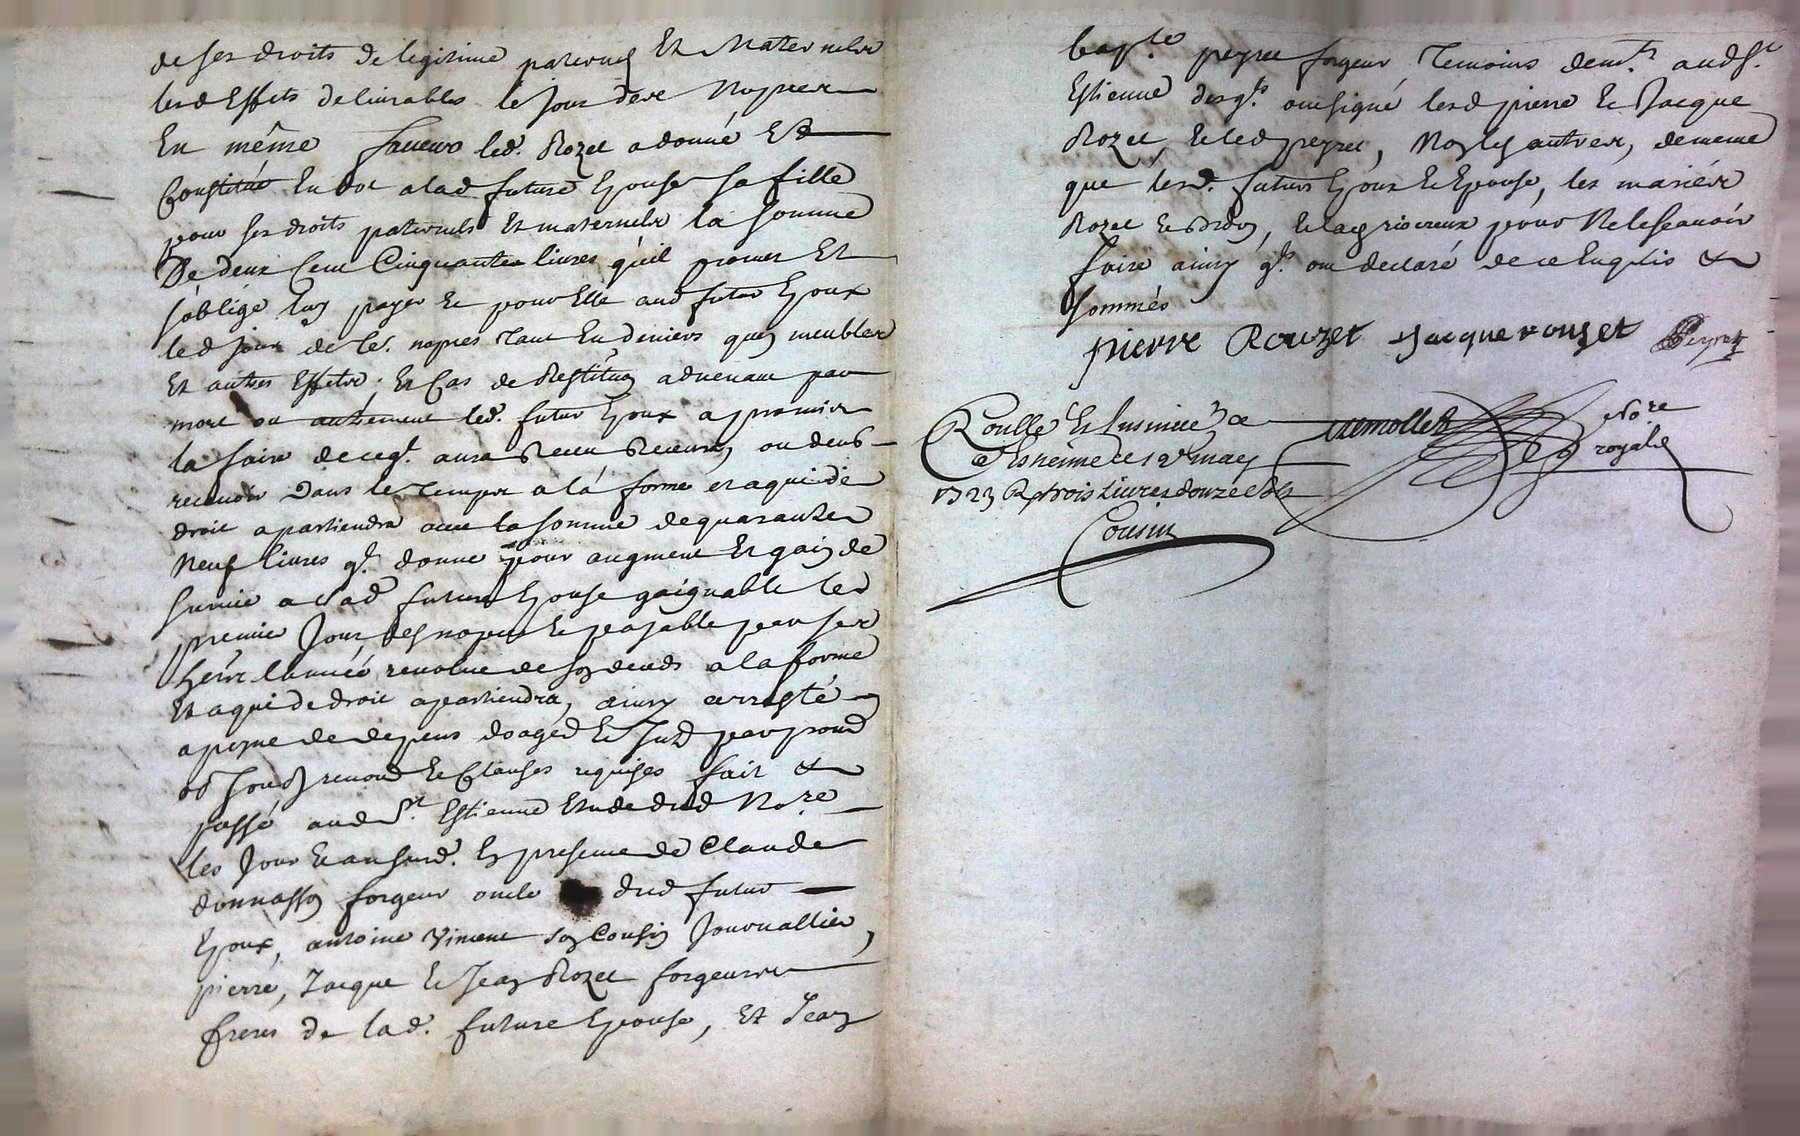 de ses droits de legitime paternel Et Maternelle
lesd Effets delivrables le jour des Nopces
En même faveurs led. Rozet a donné Et
Constitué En dot a lad future Epouse sa fille
pour ses droits paternels Et maternels la somme
De deux Cent Cinquante livres qu'il promet Et
s'oblige luy payer Et pour Elle aud futur Epoux
led jour de ses nopces tant En deniers quen meubles
Et autres Effets. Et Cas de Restitution advenant par
mort ou autrement led. futur Epoux a promis
la faire de ce q.l aura Receu ou deub
recevoir Dans le temps a la forme et a qui de
droit apartiendra avec la somme de quarante
Neuf livres q.l donne pour augment Et gain de
survie a lad future Epouse gaignable led
premier Jour des nopces Et payable par ses
heirs l'année revolue de son deceds a la forme
Et a qui de droit apartiendra, ainsy arresté
a peyne de depens domages Et
renon Et Clauses requises fait &
passé aud St. Estienne Etude dud No.re
les Jour Et an susd. En presence de Claude
donnasson forgeur oncle dud futur
Epoux, antoine Vincent son Cousin Journallier,
pierre, Jacque Et Jean Rozet forgeurs
freres de lad. future Epouse, Et Jean
bap.te peyret forgeur Temoins dem.ts aud St.
Estienne desq.ls ont signé lesd pierre Et Jacque
Rozet, Et led peyret, Non les autres, de meme
que lesd. futurs Epoux Et Epouse, les mariés
Rozet Et, pour Ne le scavoir
faire ainsy q.ls ont declaré de ce Enquis &
sommés
pierre Rouzet Jacque rouzet Peyret
Conllé Et Insinué a tremollet No.re
St Estienne ce 19e may royal
1723 R trois Livres douze sols
Cousin